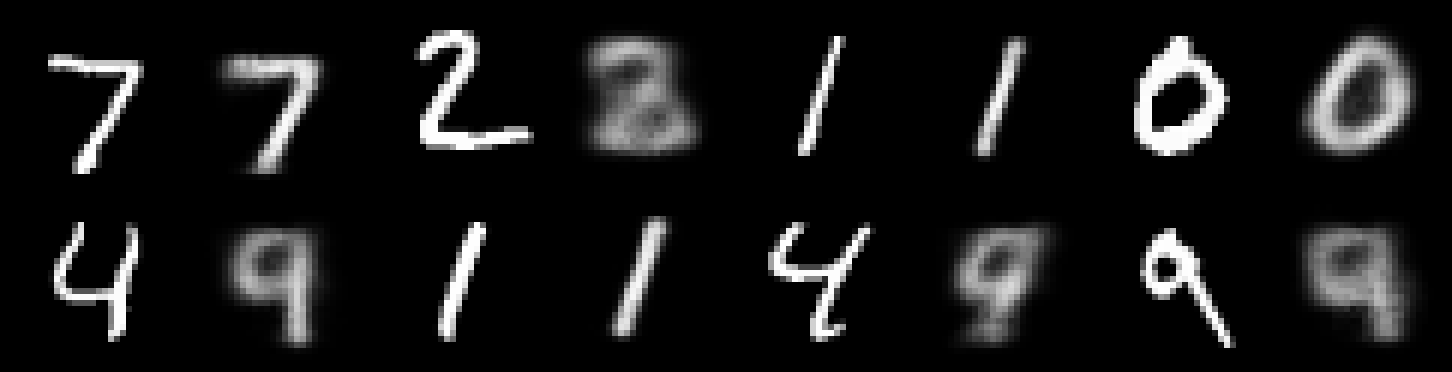 7 7 2 1 1 0 0
4 9 1 1 4 9 9 9